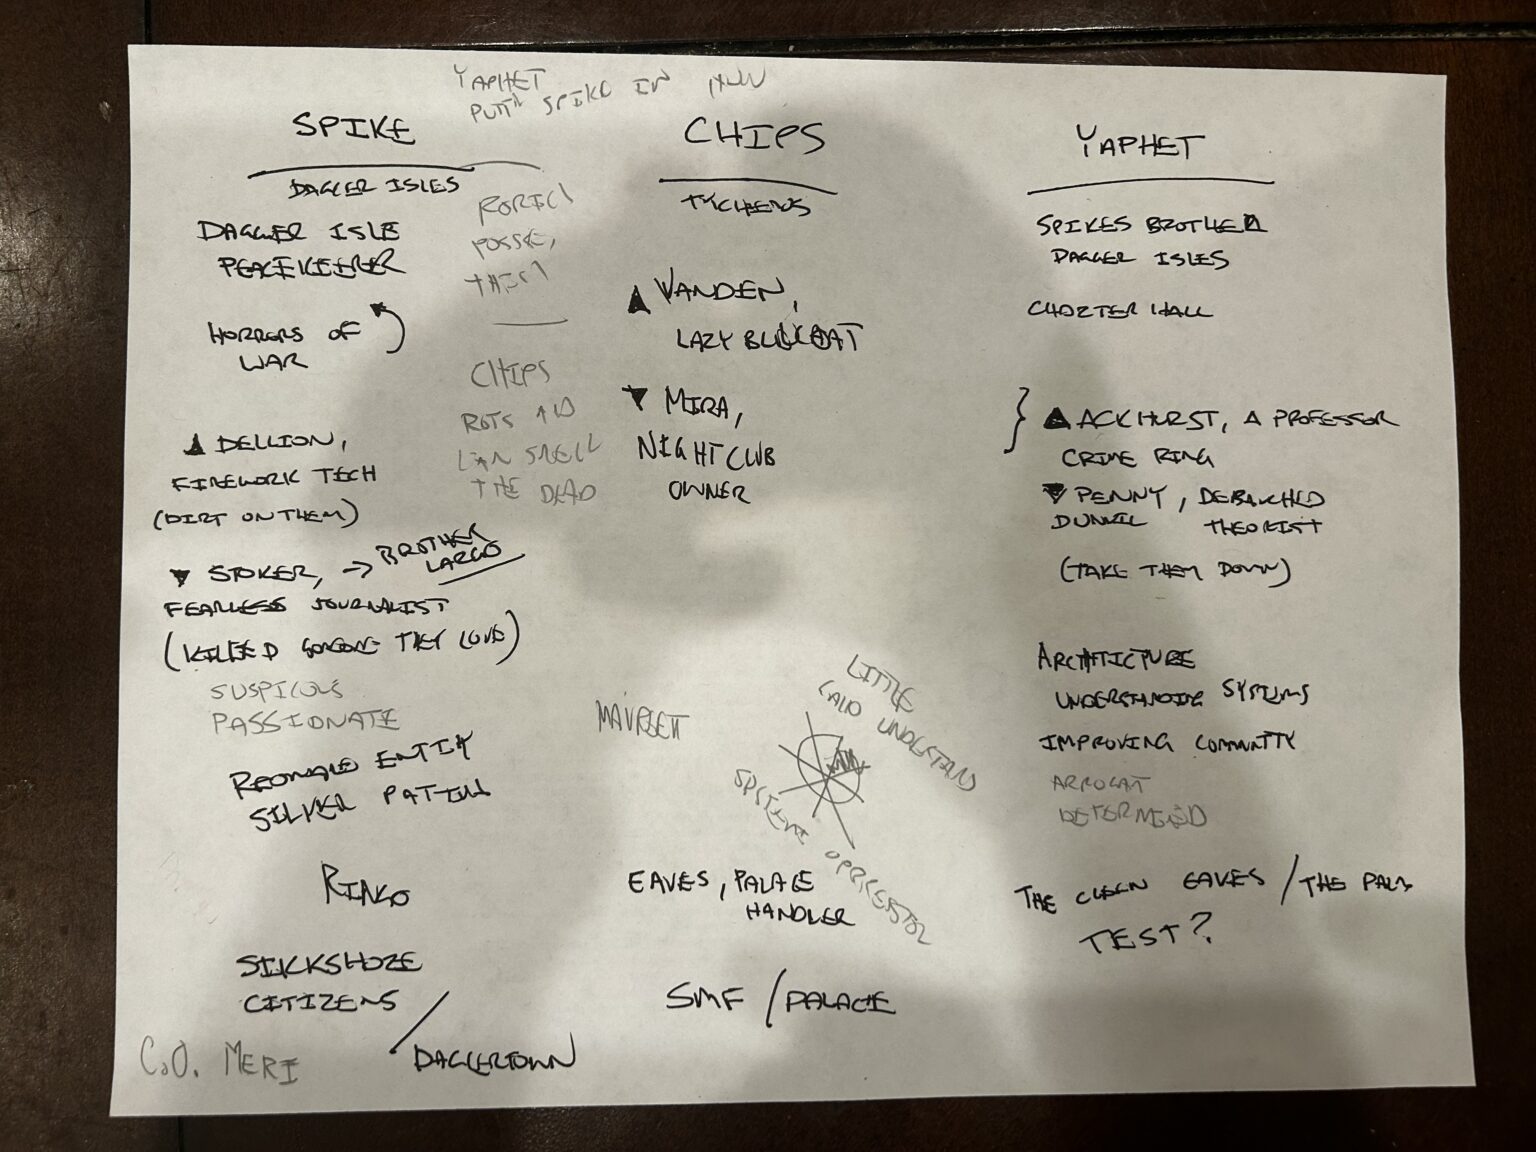 YAPHET
PUTTS SPIKE IN
SPIKE
DAGGER ISLES
DAGGER ISLE
PEACEKEEPER
HORRORS OF
WAR
▲ DELLION,
FIREWORK TECH
(DIRT ON THEM)
▼ STOKER, → BROTHER
LARGO
FEARLESS JOURNALIST
(KILLED SOMEONE THEY LOVE)
SUSPICOUS
PASSIONATE
ENTITY
SILVER
RINGO
SILKSHORE
CITIZENS
/ DAGGERTOWN
C.O. MERI
RORIC
POSSE,
CHIPS
ROTS AND
CAN SMELL
THE DEAD
CHIPS
TYCHEROS
▲ VANDEN,
LAZY BLUECOAT
▼ MIRA,
NIGHTCLUB
OWNER
LITTLE
UNDERSTAND
EAVES, PALACE
HANDLER
SMF / PALACE
YAPHET
SPIKES BROTHER
DAGGER ISLES
CHORTER HALL
} ▲ ACKHURST, A PROFESSOR
CRIME RING
▼ PENNY, DEBAUCHED
DUNVIL THEORIST
(TAKE THEM DOWN)
ARCHTICTURE
UNDERSTANDING SYSTEMS
IMPROVING COMMUNITY
ARROGAT
DETERMINED
THE EAVES / THE
TEST?